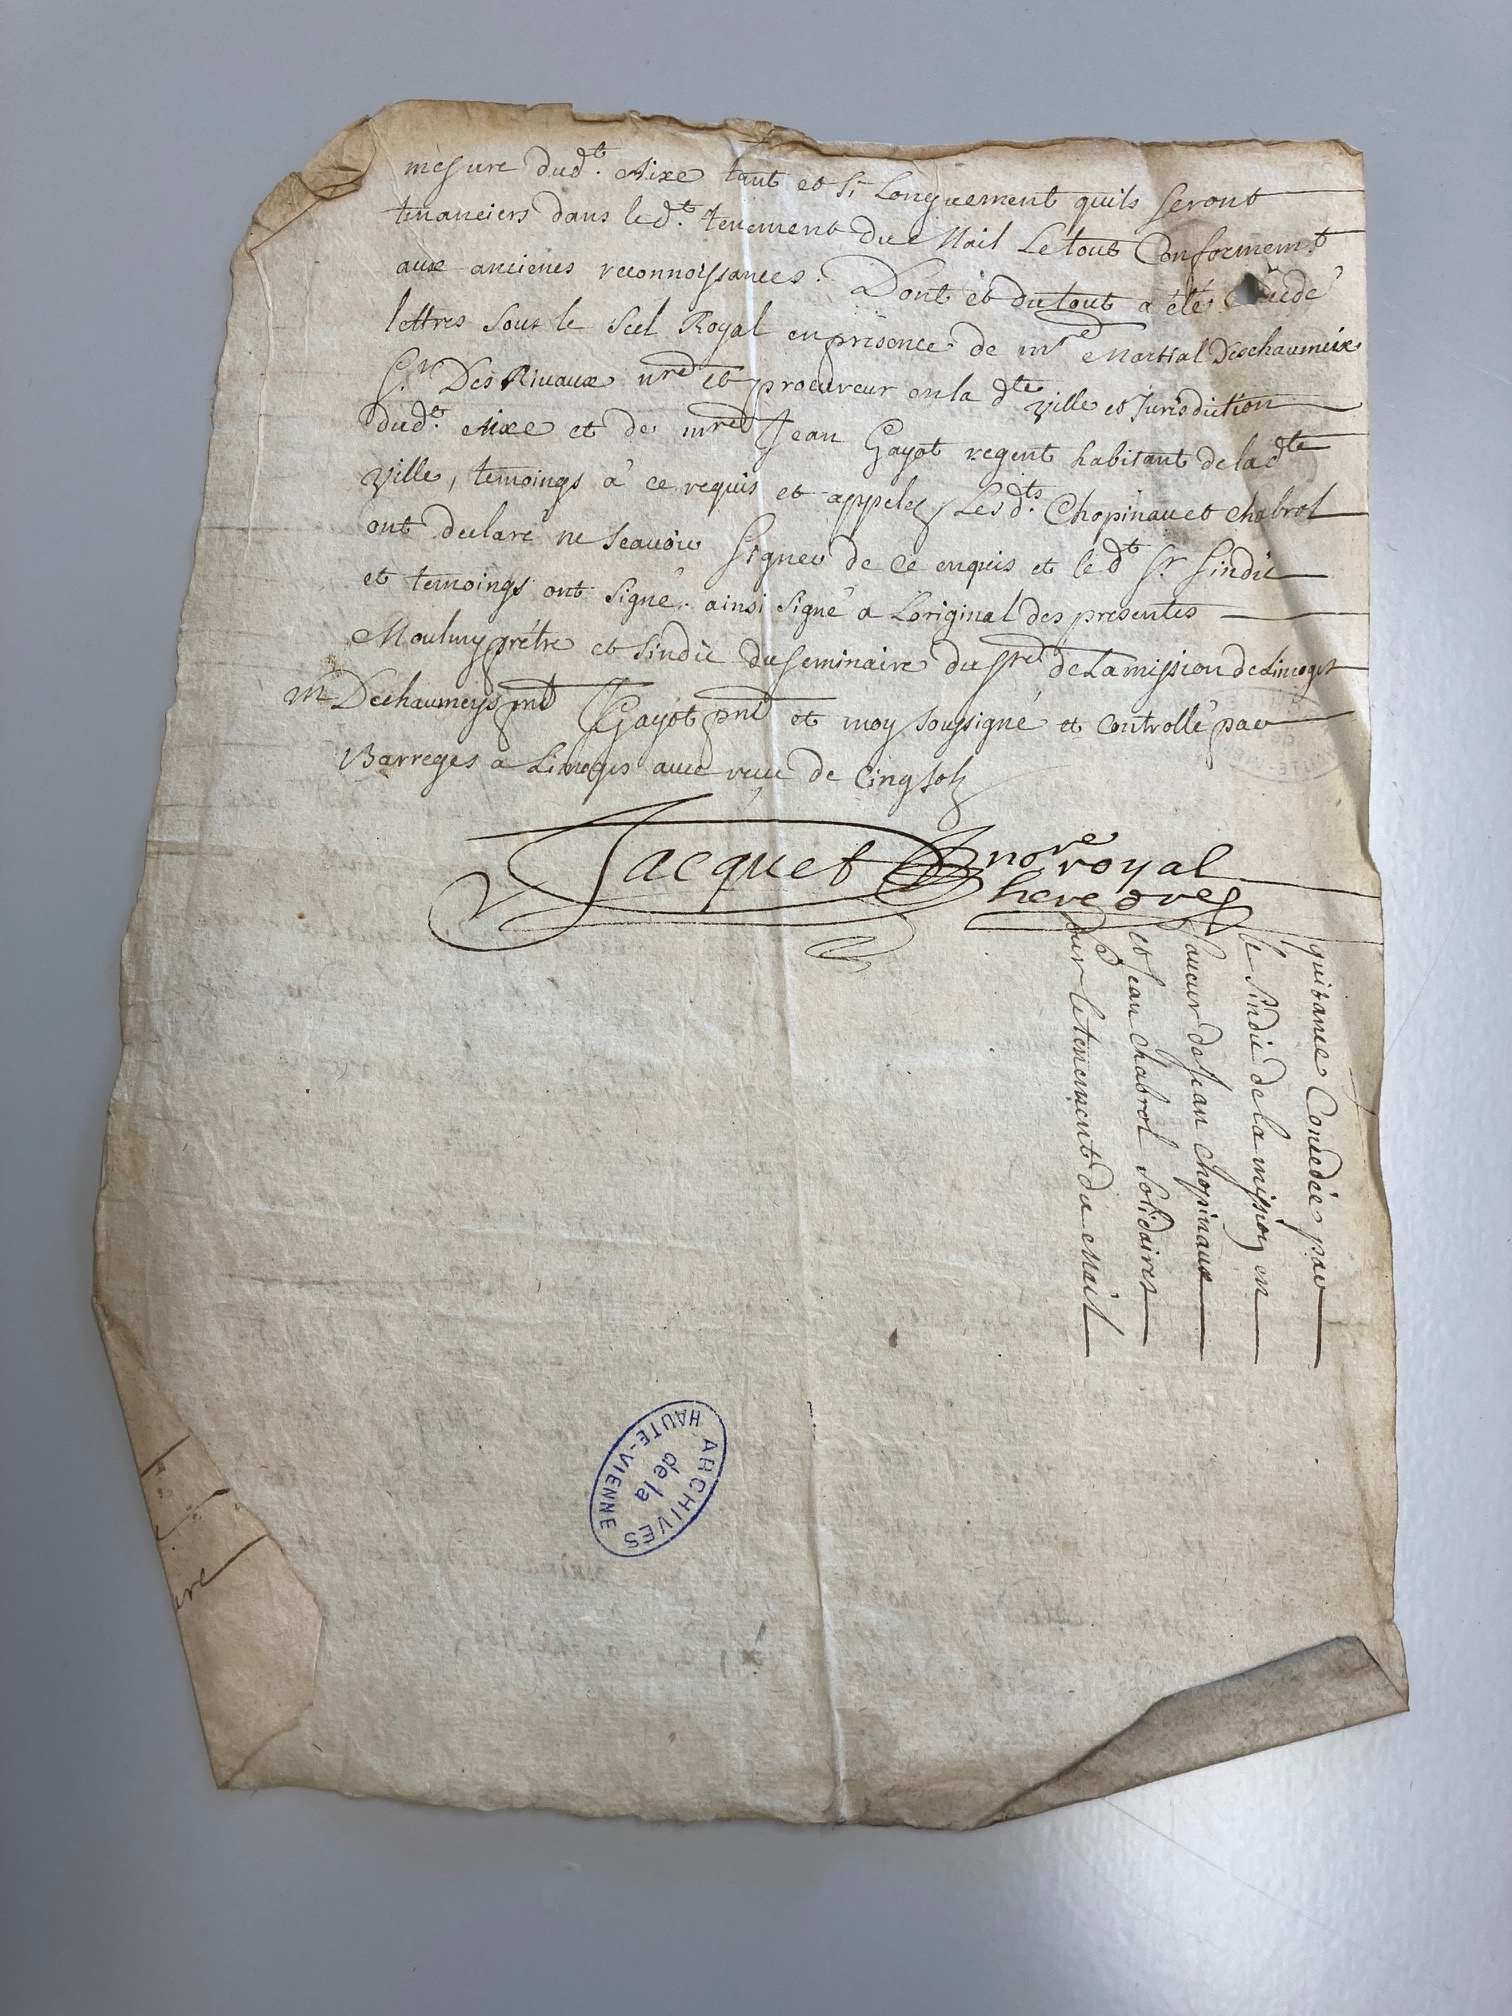 mesure dud.t Aixe tant et si Longuement quils seront
tenanciers dans led.t tenement du Mail Le tout Conformem.t
aux ancienes reconnoissances. Dont et du tout a eté
lettres sous le scel Royal en presence de mre Martial Deschaumeix
S.r Des Rivaux nre et procureur en la dte ville et Jurisdiction
dud.t Aixe et de mre Jean Gayot regent habitant de la dte
ville, temoings a ce requis et appelez Les d.ts Chopinau et Chabrol
ont declaré ne scauoir signer de ce enquis et le dt Sr Sindic
et temoings ont signé. ainsi signé a Loriginal des presentes
Moulin pretre et sindic du seminaire du de La mission de Limoges
M Dechaumeys pnt Gayot pnt et moy soussigné et Controllé par
Barreges a Limoges auec reçu de Cinq solz
Jacquet nore royal
heredre
quitance Concedée par
le sindic de la mission en
faueur de Jean Chopinaux
et Jean Chabrol solidaires
sur le tenement du Mail
ARCHIVES
de la
HAUTE-VIENNE
ure